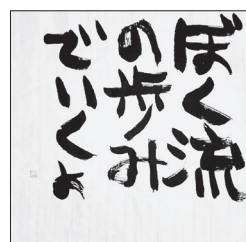 ぼく流
の歩み
でいくょ